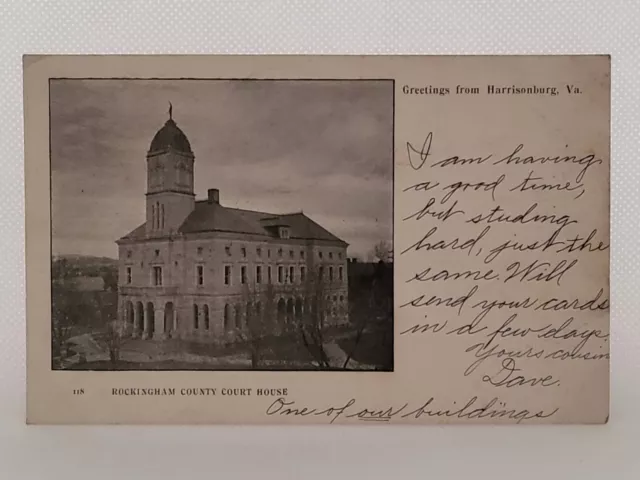 Greetings from Harrisonburg, Va.
I am having
a good time,
but studing
hard, just the
same. Will
send your cards
in a few days
Yours cousin
Dave.
118 ROCKINGHAM COUNTY COURT HOUSE
One of our buildings